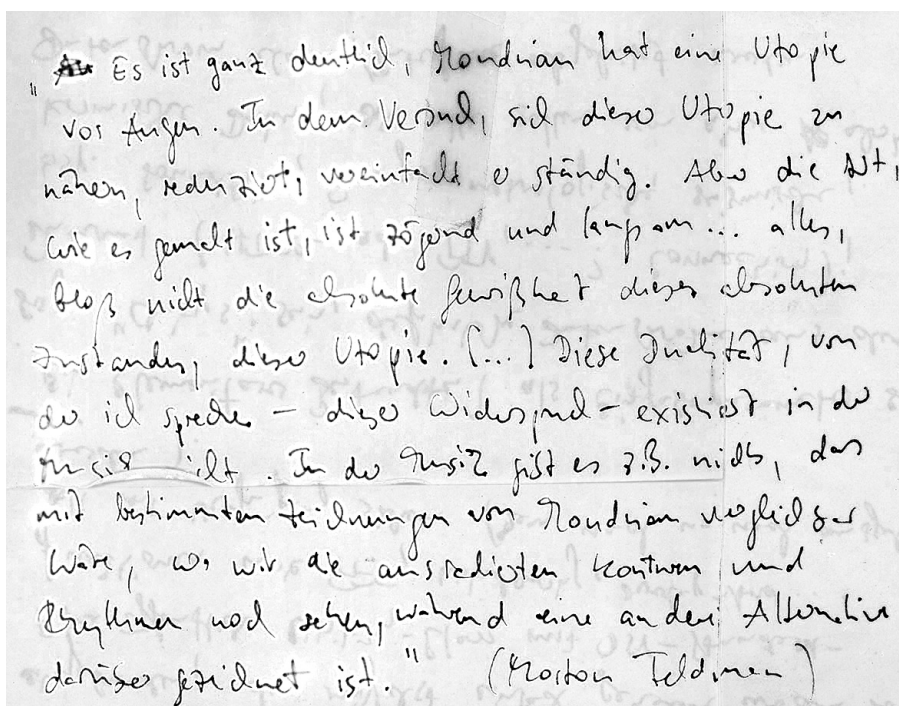 " Es ist ganz deutlich, Mondrian hat eine Utopie
vor Augen. In dem Versuch, sich dieser Utopie zu
nähern, reduziert, vereinfacht er ständig. Aber die Art,
wie es gemalt ist, ist zögernd und langsam... alles,
bloß nicht die absolute Gewißheit dieses absoluten
Zustandes, dieser Utopie. [...] Diese Dualität, von
der ich spreche – dieser Widerspruch – existiert in der
Musik nicht. In der Musik gibt es z.B. nichts, das
mit bestimmten Zeichnungen von Mondrian vergleichbar
wäre, wo wir die ausradierten Konturen und
Rhythmen noch sehen, während eine andere Alternative
darüber gezeichnet ist." (Morton Feldman)